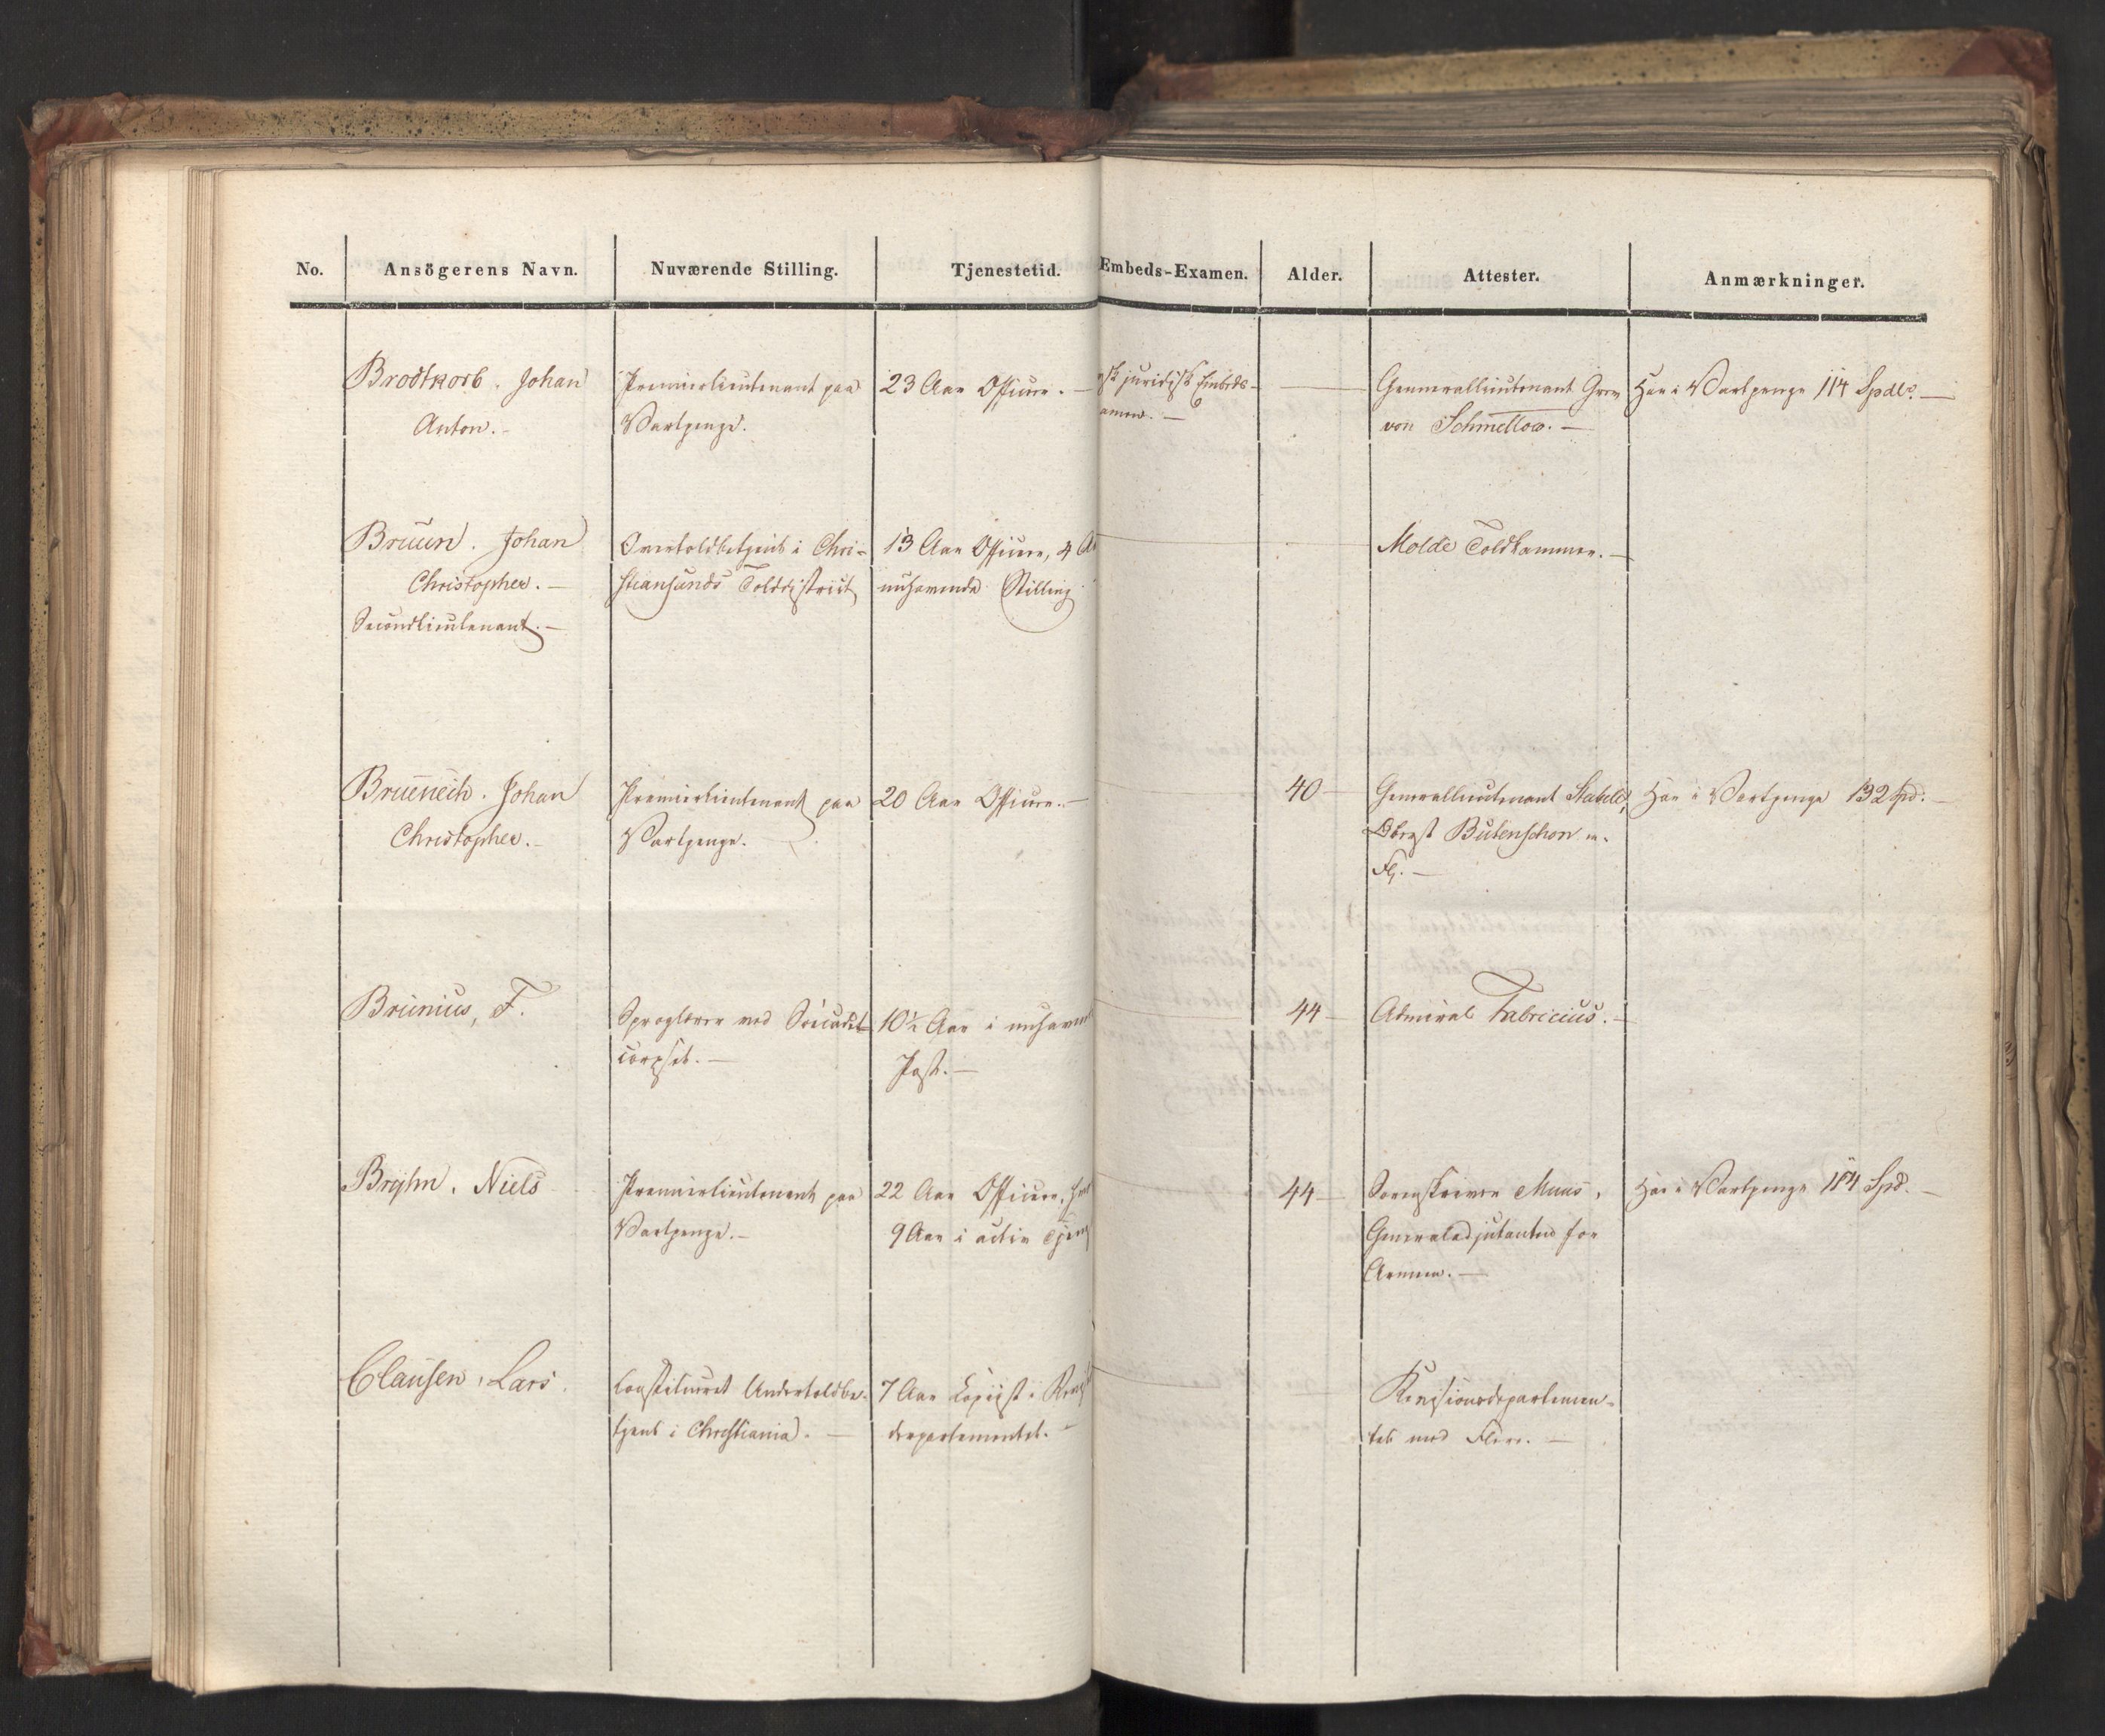 No. Ansögerens Navn. Nuværende Stilling. Tjenestetid. Embeds-Examen. Alder. Attester. Anmærkninger.
Brodtkorb. Johan Premierlieutenant paa 23 Aar Officeer. — juridisk Embeds- — Generallieutenant Grev Har i Vartpenge 114 Spdlr. —
Anton. — Vartpenge. amen. — von Schmettow. —
Bruun. Johan Overtoldbetjent i Chri- 13 Aar Officeer, 4 — Molde Toldkammer. —
Christopher. — stiansunds Tolddistrict nuhavende Stilling
Secondlieutenant. —
Bruenech. Johan Premierlieutenant paa 20 Aar Officeer. — 40 — Generallieutenant Stabell, Har i Vartpenge 132 Spd. —
Christopher. — Vartpenge. Oberst Butenschon m.
Fl. —
Brunius, F. Sproglærer ved Søcadet- 10½ Aar i 44 — Admiral Fabricius. —
corpset. — Post. —
Bryhn. Niels Premierlieutenant paa 22 Aar Officeer, 44 — Sorenskriver Muus, Har i Vartpenge 114 Spd. —
Vartpenge. — 9 Aar i activ Generaladjutanten for
Armeen. —
Clausen, Lars. Constitueret Undertoldbe- 7 Aar Copiist i Revisionsdepartemen-
tjent i Christiania. — departementet. — tet med Flere. —